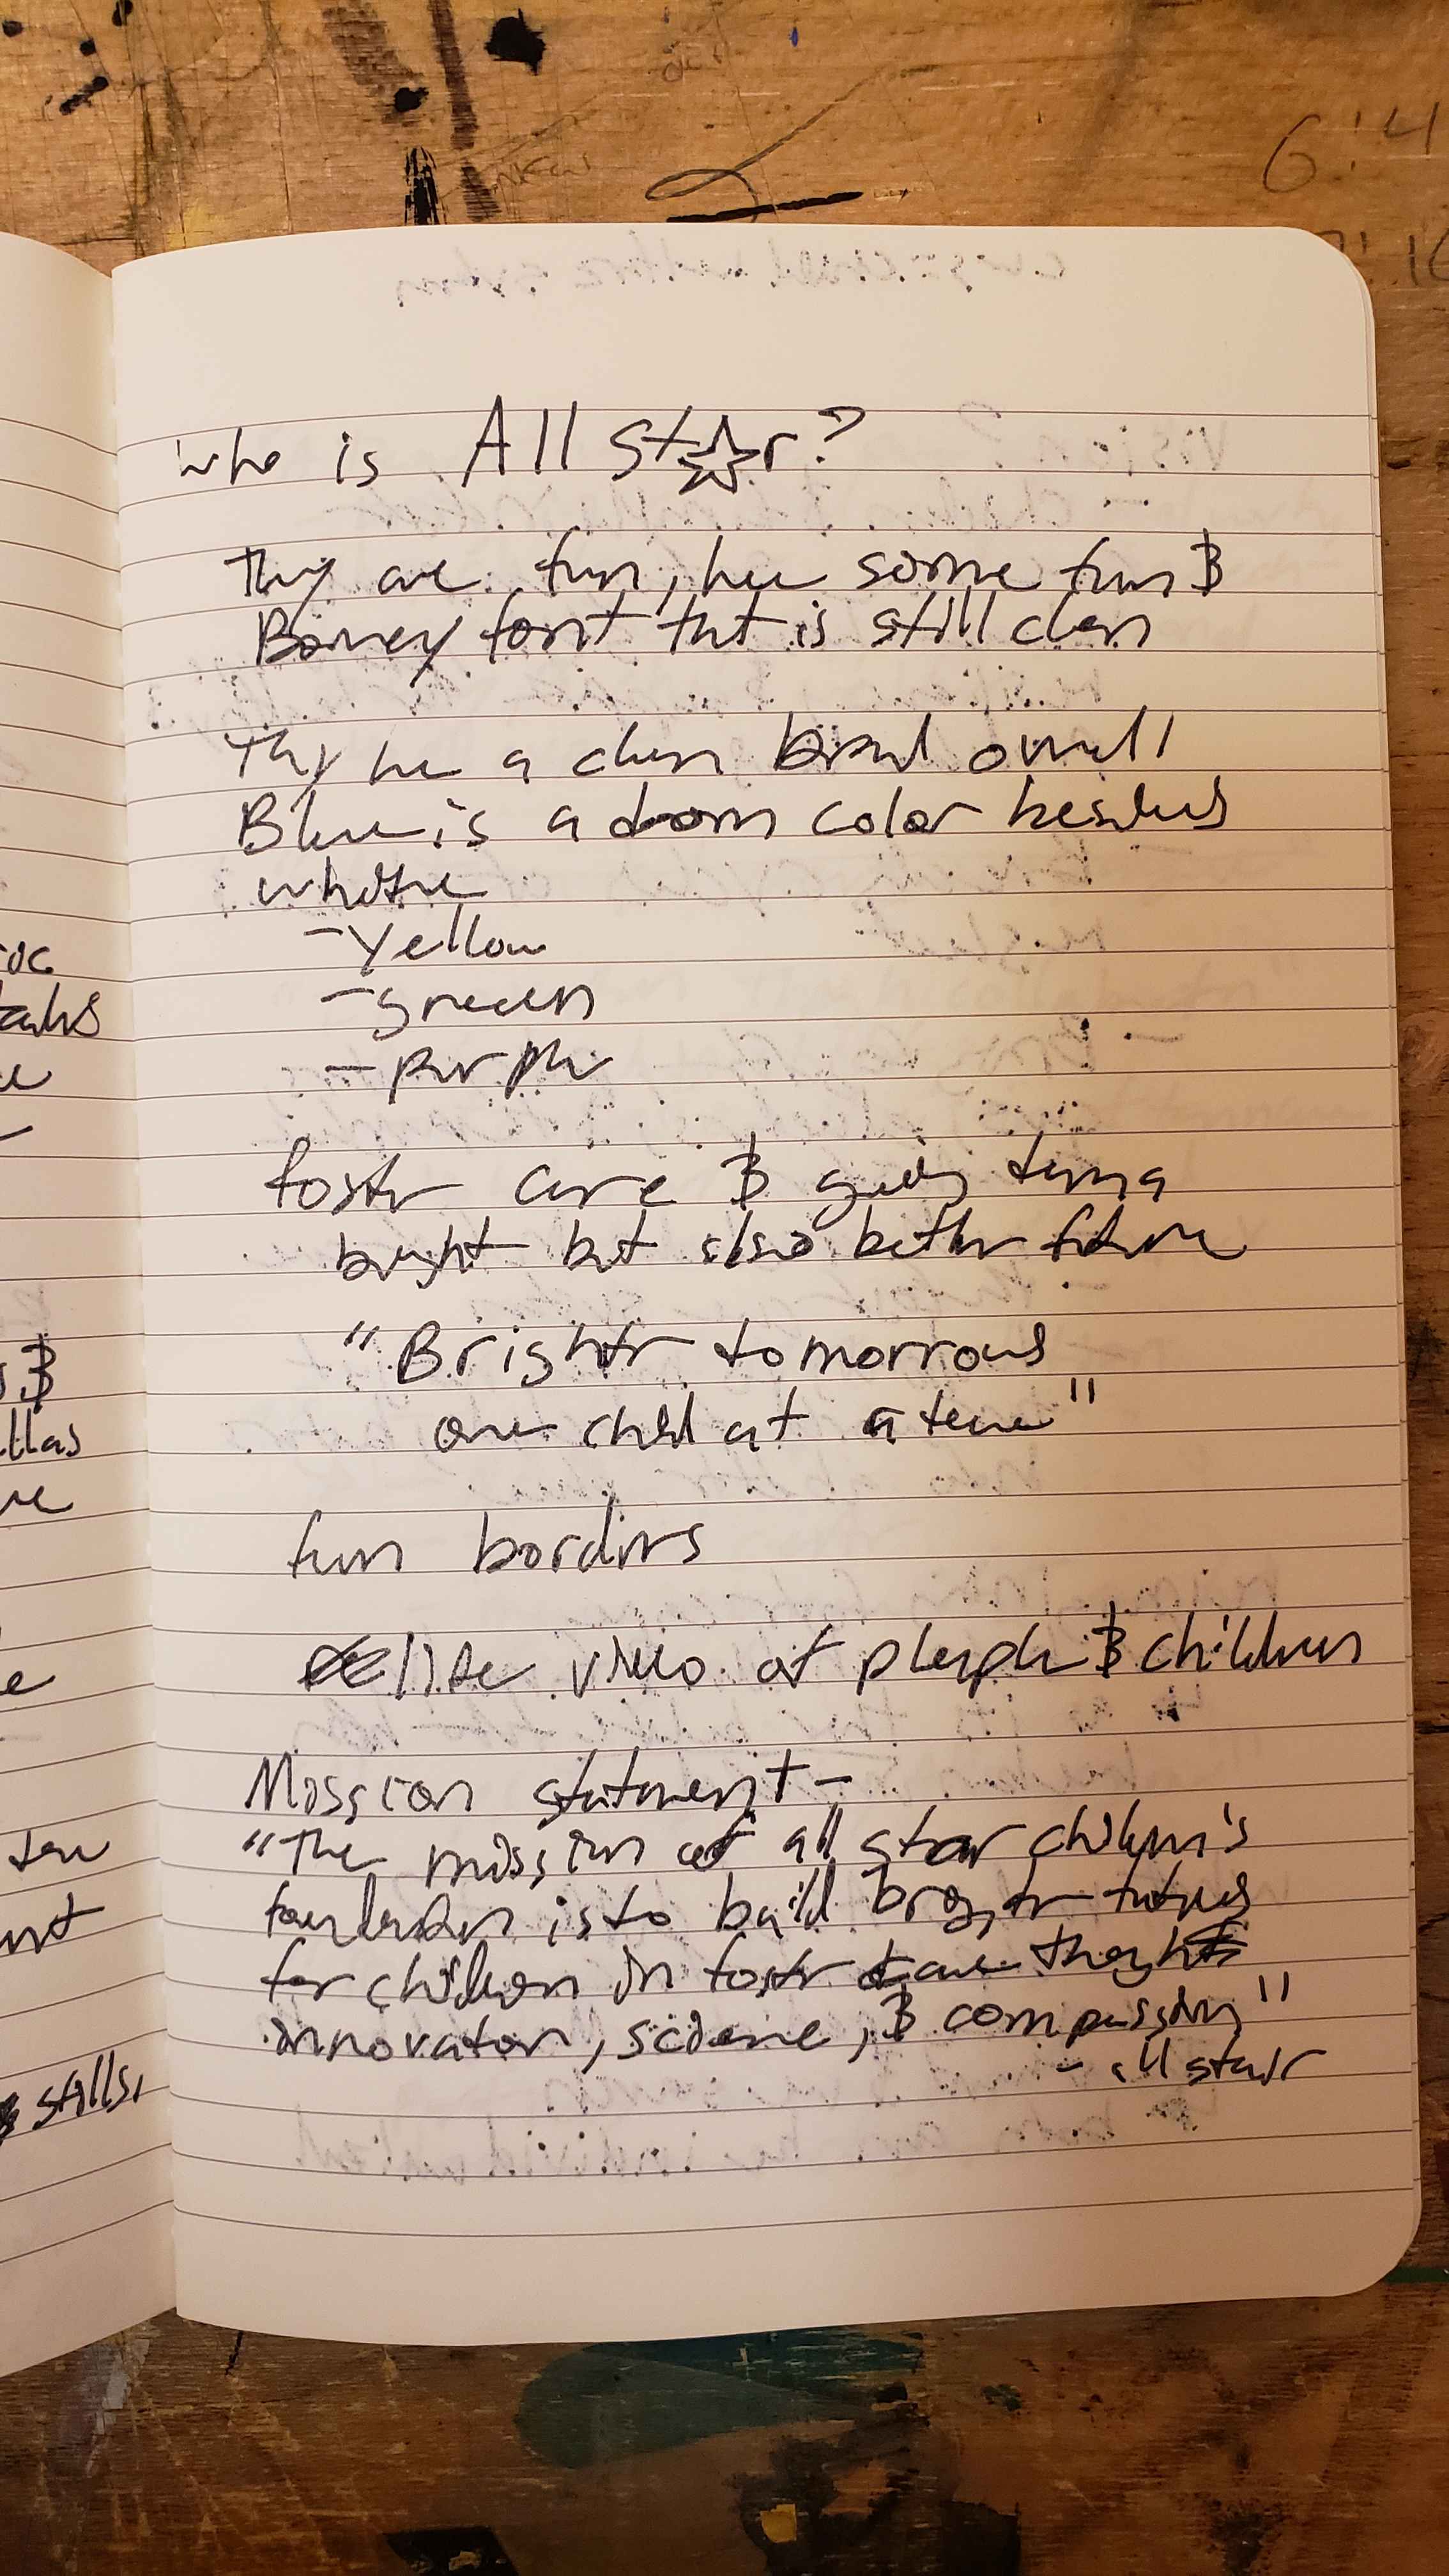 who is All st☆r?
They are fun, have some fun &
Boncy font that is still clean
They have a clean brand overall
Blue is a dom color besides
white
- Yellow
- green
- purple
foster care & giving them a
bright but also better future
"Brighter tomorrows
one child at a time"
fun borders
like video of people & children
Mission statement -
"The mission of all star children's
foundation is to build brighter futures
for children in foster care through
innovation, science, & compassion"
- all star
stills,